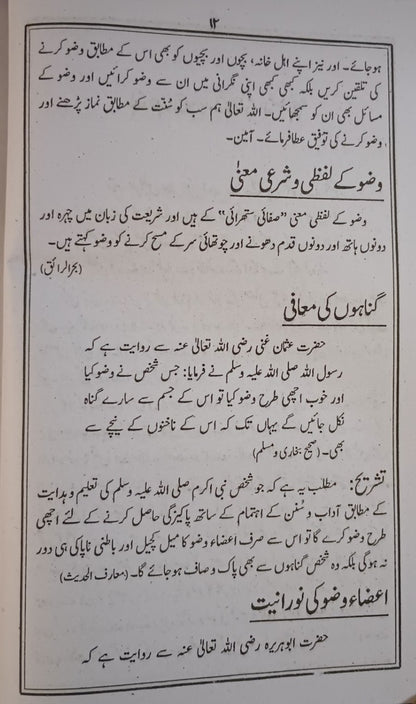 ۱۲
ہوجائے۔ اور نیز اپنے اہل خانہ، بچوں اور بچیوں کو بھی اس کے مطابق وضو کرنے
کی تلقین کریں بلکہ کبھی کبھی اپنی نگرانی میں ان سے وضو کرائیں اور وضو کے
مسائل بھی ان کو سمجھائیں۔ اللہ تعالیٰ ہم سب کو سُنّت کے مطابق نماز پڑھنے اور
وضو کرنے کی توفیق عطا فرمائے۔ آمین۔
وضو کے لفظی و شرعی معنیٰ
وضو کے لفظی معنی ”صفائی ستھرائی“ کے ہیں اور شریعت کی زبان میں چہرہ اور
دونوں ہاتھ اور دونوں قدم دھونے اور چوتھائی سر کے مسح کرنے کو وضو کہتے ہیں۔
(بحر الرائق)
گناہوں کی معافی
حضرت عثمان غنی رضی اللہ تعالیٰ عنہ سے روایت ہے کہ
رسول اللہ صلی اللہ علیہ وسلم نے فرمایا: جس شخص نے وضو کیا
اور خوب اچھی طرح وضو کیا تو اس کے جسم سے سارے گناہ
نکل جائیں گے یہاں تک کہ اس کے ناخنوں کے نیچے سے
بھی۔ (صحیح بخاری و مسلم)
تشریح: مطلب یہ ہے کہ جو شخص نبی اکرم صلی اللہ علیہ وسلم کی تعلیم و ہدایت
کے مطابق آداب و سُنن کے اہتمام کے ساتھ پاکیزگی حاصل کرنے کے لئے اچھی
طرح وضو کرے گا تو اس سے صرف اعضاء وضو کا میل کچیل اور باطنی ناپاکی ہی دور
نہ ہوگی بلکہ وہ شخص گناہوں سے بھی پاک و صاف ہوجائے گا۔ (معارف الحدیث)
اعضاء وضو کی نورانیت
حضرت ابوہریرہ رضی اللہ تعالیٰ عنہ سے روایت ہے کہ